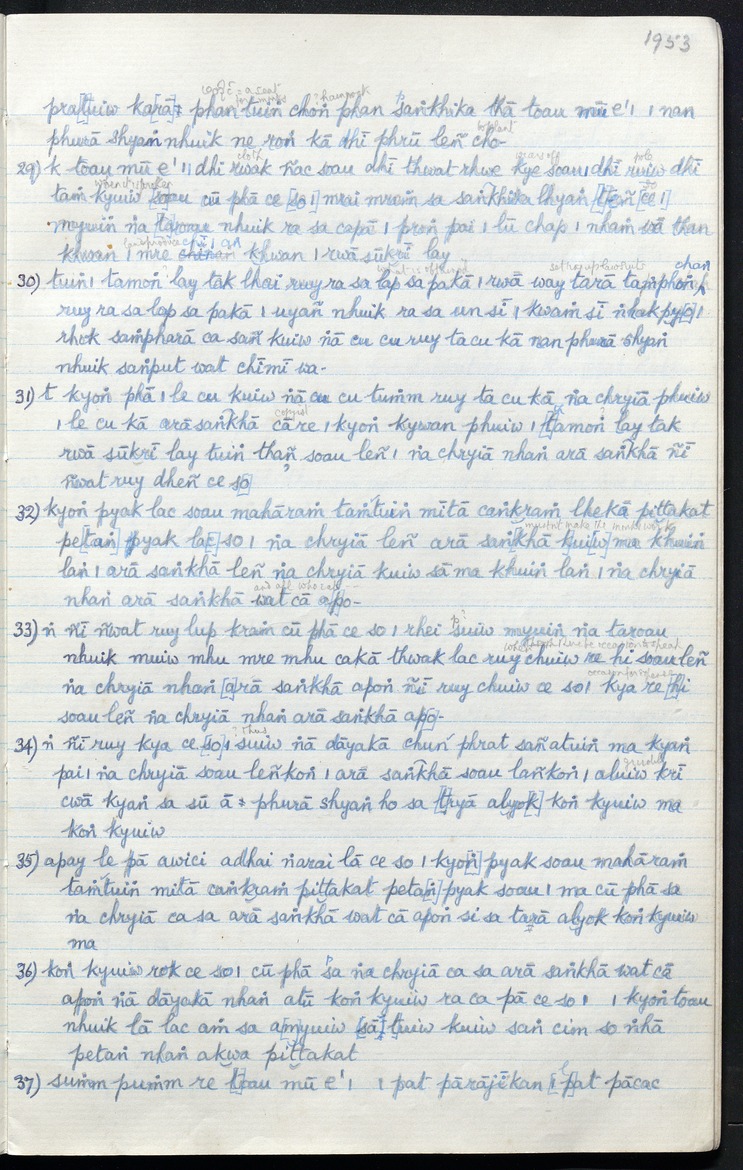 1953
pra[t]uiw ka[rā]: phan tuiṅ choṅ phan saṅkhika thā toau mū e' | | nan
phurā shyaṅ nhuik ne roṅ kā dhī phrū leñ cho-
29) k toau mū e' | | dhī rwak ñac soau dhī thwat rhwe kye soau | dhī ruiw dhī
tam kyuiw soau cū phā ce [so |] mrai mroṁ sa saṅkhika lhyaṅ [t]eñ [ce |]
myuiṅ ṅa taroau nhuik ra sa capā | proṅ pai | lū chap | nham sā than
khwan | mre khwan | rwā sūkrī lay
30) tuiṅ | tamoṅ lay tak lhai ruy ra sa lap sa pakā | rwā way tarā lamphoṅ
chan
ruy ra sa lap sa pakā | uyañ nhuik ra sa un sī | kwaṁ sī ṅhak pyo |
rhok saṁpharā ca sañ kuiw ṅā cu cu ruy ta cu kā nan phurā shyaṅ
nhuik saṅput wat chīmī wa-
31) t kyoṅ phā | le cu kuiw ṅā cu cu tuṁm ruy ta cu kā ṅa chryiā phuiw
| le cu kā arā saṅkhā cā re | kyoṅ kywan phuiw | [t]amoṅ lay tak
rwā sūkrī lay tuiṅ thañ soau leñ | ṅa chryiā nhaṅ arā saṅkhā ñī
ñwat ruy dheñ ce so
32) kyoṅ pyak lac soau mahāraṁ taṁtuiṅ mitā caṅkraṁ lhekā pittakat
pe[taṅ] pyak la[c] so | ṅa chryiā leñ arā saṅkhā kuiw ma khuiṅ
laṅ | arā saṅkhā leñ ṅa chryiā kuiw sā ma khuiṅ laṅ | ṅa chryiā
nhaṅ arā saṅkhā wat cā apo-
33) ṅ ñī ñwat ruy lup kraṁ cū phā ce so | rhei suiw myuiṅ ṅa taroau
nhuik muiw mhu mre mhu cakā thwak lac ruy chuiw re hi soau leñ
ṅa chryiā nhaṅ [a]rā saṅkhā apoṅ ñī ruy chuiw ce so | kya re [h]i
soau leñ ṅa chryiā nhaṅ arā saṅkhā apo-
34) ṅ ñī ruy kya ce [so] | suiw ṅā dāyakā chuṅ phrat sañ atuiṅ ma kyaṅ
pai | ṅa chryiā soau leñkoṅ | arā saṅkhā soau lañkoṅ | aluiw krī
cwā kyaṅ sa sū ā: phurā shyaṅ ho sa [t]ryā alyo[k] koṅ kyuiw ma
koṅ kyuiw
35) apay le pā awici adhai ṅarai lā ce so | kyo[ṅ] pyak soau mahāraṁ
taṁtuiṅ mitā caṅkraṁ pittakat peta[ṅ] pyak soau | ma cū phā sa
ṅa chryiā ca sa arā saṅkhā wat cā apoṅ si sa tarā alyok koṅ kyuiw
ma
36) koṅ kyuiw rok ce so | cū phā sa ṅa chryiā ca sa arā saṅkhā wat cā
apoṅ ṅā dāyakā nhaṅ atū koṅ kyuiw ra ca pā ce so | | kyoṅ toau
nhuik lā lac aṁ sa a[m]yuiw [sā] tuiw kuiw sañ cim so ṅhā
petaṅ nhaṅ akwa pittakat
37) suṁm puṁm re [t]oau mū e' | | pat pārājikan [|] pat pācac